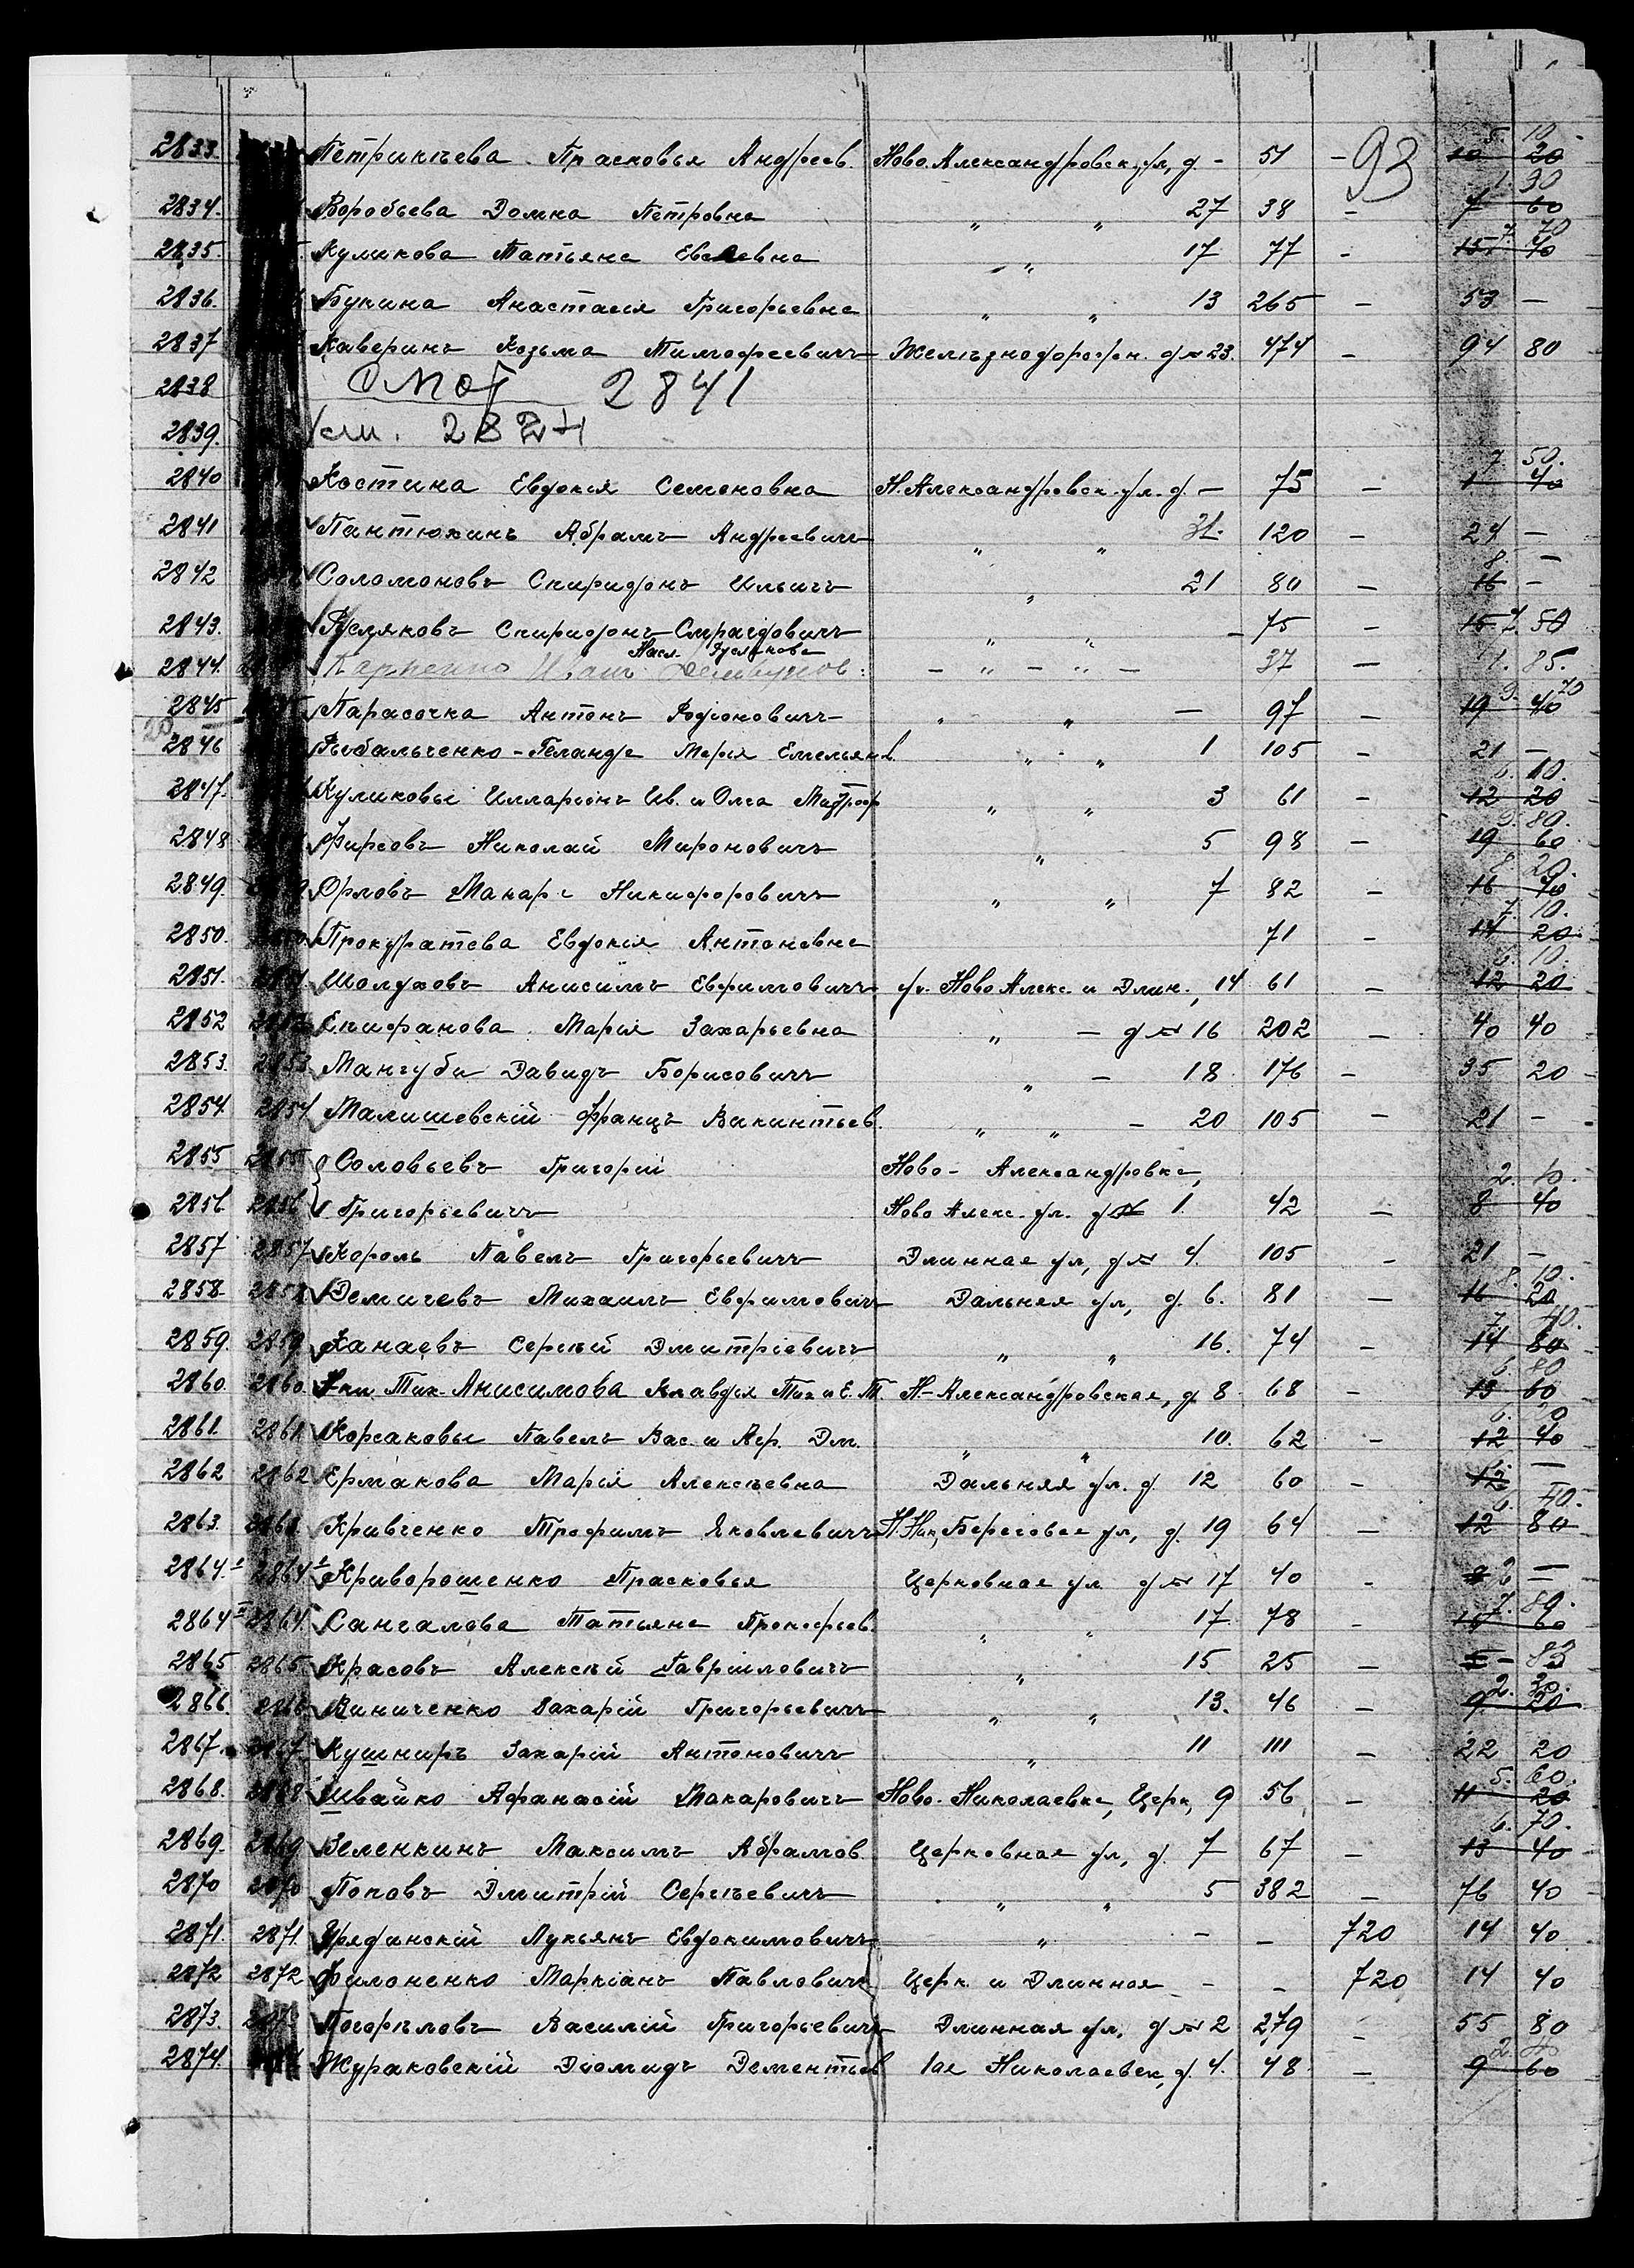 93
2833. Петрикѣева Прасковья Андреев. Ново. Александровск. ул, д. - 51 - 10 20 5. 10
2834. Воробьева Домна Петровна " " 27 38 - 7 60 1. 90
2835. Куликова Татьяна 17 77 - 15 40 7. 70
2836. Букина Анастасія Григорьевна " " 13 265 - 53 -
2837 Каверинъ Козьма Тимофеевичъ Желѣзнодорожн. д № 23. 474 - 94 80
2838 Смот 2841
2839. см. 2824
2840 Костина Евдокія Семеновна Н. Александровск. ул. д. - 75 - 1 40 7 50.
2841 Пантюхинъ Абрамъ Андреевичъ " " 31. 120 - 24 -
2842 Соломоновъ Спиридонъ Ильичъ " 21 80 - 16 - 8. -
2843. Русляковъ Спиридонъ " " - 75 - 15 7. 50
2844. Иванъ Насл. Руслякова - " - " - 37 - 1. 85.
2845 Парасочка Антонъ Родіоновичъ " " - 97 - 19 40 9. 70
2846 Рыбальченко-Геланде Марія Емельянов. " " 1 105 - 21 -
2847. Куликовы Илларіонъ Ив. и Ольга " " 3 61 - 12 20 6. 10.
2848 Фирсовъ Николай Мироновичъ " 5 98 - 19 60 9. 80.
2849. Орловъ Макаръ Никифоровичъ " " 7 82 - 16 40 8. 20.
2850. Прокуратова Евдокія Антоновна 71 - 14 20 7. 10.
2851. 2851. Шолуховъ Анисимъ Евфимовичъ уг. Ново Алекс. и Длин., 14 61 - 12 20 6. 10.
2852 2852 Епифанова Марія Захарьевна " - д № 16 202 - 40 40
2853. 2853. Мангуби Давидъ Борисовичъ " - 18 176 - 35 20
2854. 2854 Малишевскій Францъ Викентьев. " " - 20 105 - 21 -
2855 2855 Соловьевъ Григорій Ново- Александровка,
2856. 2856 Григорьевичъ Ново Алекс. ул. д № 1 42 - 8 40 2. 10.
2857 2857 Король Павелъ Григорьевичъ Длинная ул, д № 4. 105 - 21 -
2858 2858 Демичевъ Михаилъ Евфимовичъ Дальняя ул, д. 6. 81 - 16 20 8. 10.
2859. 2859 Канаевъ Сергѣй Дмитріевичъ " " 16. 74 - 14 80 7. 40.
2860. 2860. Анисимова Клавдія Тих и Е. Т. Н-Александровская, д 8 68 - 13 60 6. 80
2861. 2861 Корсаковы Павелъ Вас. и Агр. Дм. " " 10. 62 - 12 40 6. 20
2862 2862 Ермакова Марія Алексѣевна Дальняя ул. д 12 60 - 12 - 6. -
2863. 2863. Кривченко Трофимъ Яковлевичъ Н. Ник, Береговая ул, д. 19 64 - 12 80 6. 40.
2864.I 2864.I Криворошенко Прасковья Церковная ул. д № 17 40 - 8 2 -
2864 II 2864. Сангалова Татьяна Прокофьев. " " 17. 78 - 15 60 7. 80.
2865 2865. Красовъ Алексѣй Гавриловичъ " 15 25 - 5 - 83
2866. 2866 Виниченко Захарій Григорьевичъ " " 13. 46 - 9 20 2. 30.
2867. 2867. Кушниръ Захарій Антоновичъ " 11 111 - 22 20
2868. 2868 Швайко Афанасій Макаровичъ Ново-Николаевка, Церк, 9 56 - 11 20 5. 60.
2869. 2869 Зеленкинъ Максимъ Абрамов Церковная ул, д. 7 67 - 13 40 6. 70.
2870 2870 Поповъ Дмитрій Сергѣевичъ " " 5 382 - 76 40
2871. 2871. Грединскій Лукьянъ Евдокимовичъ " - - 720 14 40
2872 2872 Филоненко Маркіанъ Павловичъ Церк. и Длинная - - 720 14 40
2873. Погорѣловъ Василій Григорьевичъ Длинная ул, д № 2 279 - 55 80
2874. Жураковскій Діомидъ Дементьев 1ая Николаевск, д. 4. 48 - 9 60